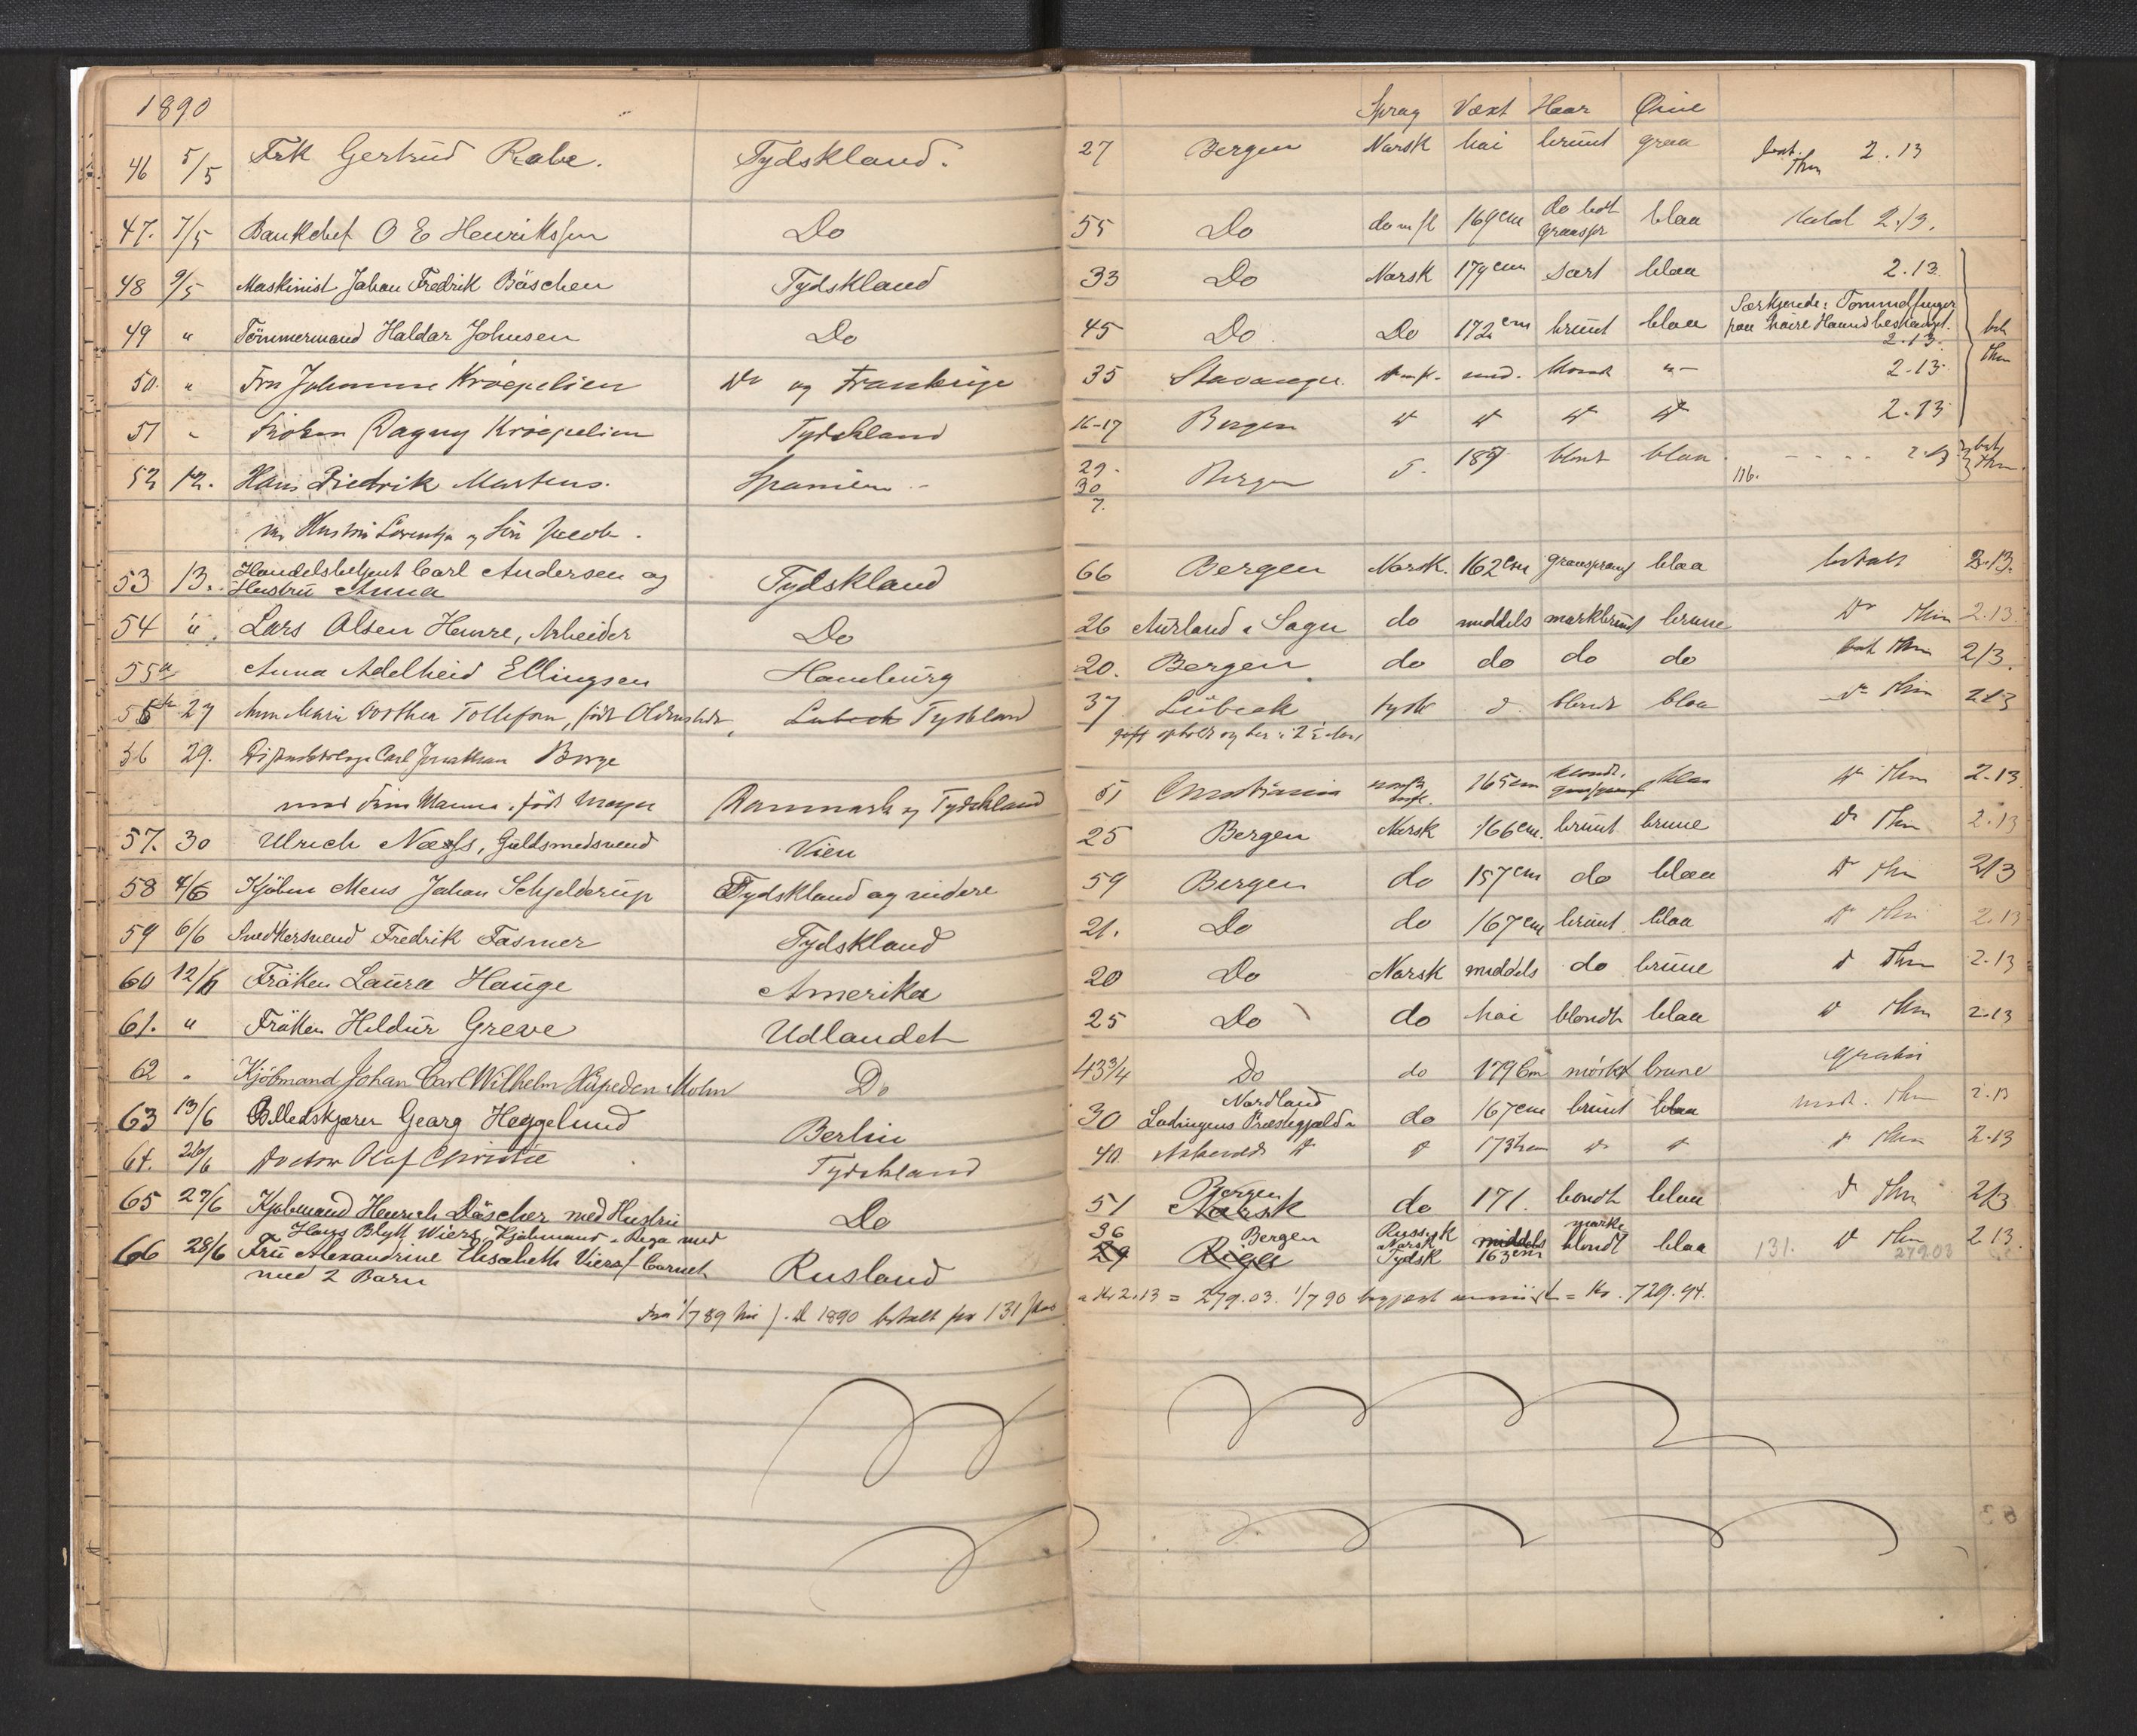 1890
Sprog Væxt Haar Øine
46 5/5 Frk Gertrud Rabe. Tydskland. 27 Bergen Norsk høi brunt graa 2.13
47. 7/5 Bankchef O E Henrikssen Do 55 Do 169 cm blaa betal 2.13.
48 9/5 Maskinist Johan Fredrik Bäschen Tydskland 33 Do Norsk 179 cm sort blaa 2.13
Særkjende: Tommelfinger
49 " Tömmermand Haldor Johnsen Do 45 Do Do 172 cm brunt blaa paa høire Haand beskadiget.
2.13.
50. " Fru Johanne Krøepelien Do og Frankrige 35 Stavanger. mid. blond "- 2.13
51 " Frøken Dagny Krøepelien Tydskland 16-17 Bergen 2.13
52 12. Hans Diedrik Martens. Spanien 29. Bergen 187 blont blaa
30
7.
m Hustru Lorentze og Søn Jacob.
53 13. Handelsbetjent Carl Andersen og Tydskland 66 Bergen Norsk. 162 cm graasprængt blaa betalt 2.13.
Hustru Anna
54 " Lars Olsen Henre, Arbeider Do 26 Aurland i Sogn do middels mørkbrunt brune Do Thm 2.13
55a Anna Adelheid Ellingsen Hamburg 20. Bergen do do do do bet Thm 2/3.
27 Anna Marie Dorthea Tollefsen, født Lubeck Tyskland 37 Lübeck tysk blondt blaa 2.13
56 29. Carl Jonathan Borge
med Frue Hanna, født Meyer Danmark og Tydskland 51 Christiania 165 cm blondt. blaa 2.13
57. 30 Ulrich Næss, Guldsmedsvend Vien 25 Bergen Norsk 166 cm. brunt brune Do Thm 2.13
58 4/6 Kjøbm Mens Johan Schjelderup Tydskland og videre 59 Bergen do 157 cm do blaa Do Thm 2/3
59 6/6 Snedkersvend Fredrik Fasmer Tydskland 21. Do do 167 cm brunt blaa Do Thm 2.13
60 12/6 Fröken Laura Hauge Amerika 20 Do Norsk middels do brune Do Thm 2.13
61. " Fröken Hildur Greve Udlandet 25 Do do høi blondt blaa Do Thm 2.13
62 " Kjöbmand Johan Carl Wilhelm Hüpeden Mohn Do 43 3/4 Do do 179 Cm mörkt brune gratis
Nordland
63 13/6 Billedskjærer Georg Heggelund Berlin 30 Lødingens Præstegjæld do 167 cm brunt blaa Thm 2.13
64. 26/6 Doctor Olaf Christie Tydskland 40 173 cm Do Thm 2.13
Bergen
65 27/6 Kjøbmand Henrich Däscher med Hustru Do 51 Norsk do 171. blondt blaa Do Thm 2/3
Hans Blyth Wiers, Kjøbmand i Riga med 36 Bergen Russisk mørke
66 28/6 Fru Alexandrine Elisabeth Viers f Cornet Rusland 29 Riga Norsk Tydsk middels 163 cm blondt blaa 131. Do Thm 2.13.
med 2 Barn 279.03
Fra 1/7 89 betalt for 131 Pas a Kr 2.13 = 279.03. 1/7 90 = Kr. 729.94.